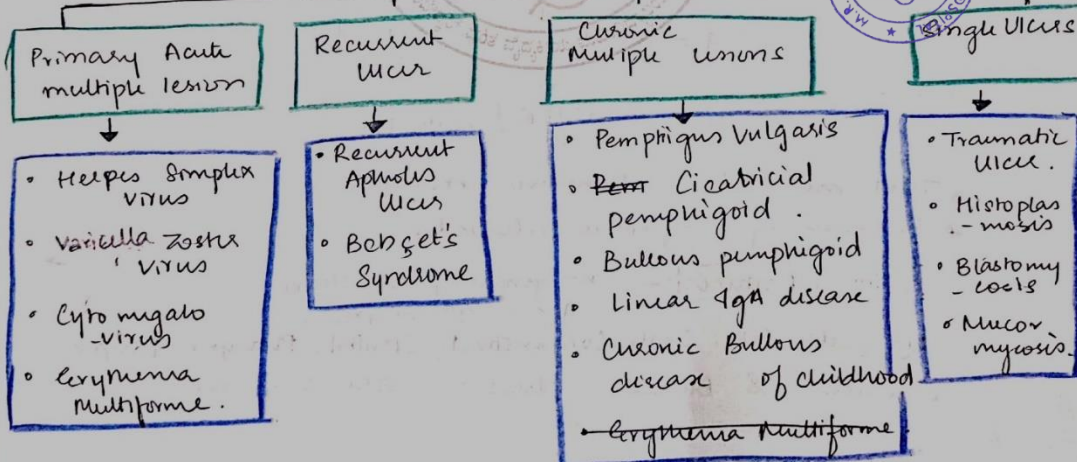 Primary Acute
multiple lesion
Recurrent
Ulcer
Chronic
Multiple lesions
Single Ulcers
• Herpes Simplex
Virus
• Varicella Zoster
Virus
• Cyto megalo
-virus
• Erythema
Multiforme.
• Recurrent
Apthous
Ulcer
• Behçet's
Syndrome
• Pemphigus Vulgaris
• Pem Cicatricial
pemphigoid.
• Bullous pemphigoid
• Linear IgA disease
• Chronic Bullous
disease of childhood
• Erythema Multiforme
• Traumatic
Ulcer.
• Histoplas
-mosis
• Blastomy
-cosis
• Mucor
mycosis.